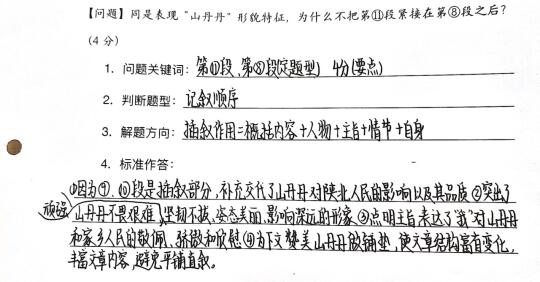 【问题】同是表现“山丹丹”形貌特征，为什么不把第⑪段紧接在第⑧段之后？
（4 分）
1. 问题关键词：第⑪段、第⑧段(定题型) 4分(要点)
2. 判断题型：记叙顺序
3. 解题方向：插叙作用=概括内容+人物+主旨+情节+自身
4. 标准作答：
①因为⑨、⑩段是插叙部分，补充交代了山丹丹对陕北人民的影响以及其品质②突出了
顽强
山丹丹不畏艰难、坚韧不拔、姿态美丽、影响深远的形象③点明主旨表达了“我”对山丹丹
和家乡人民的敬佩、骄傲和欣慰④为下文赞美山丹丹做铺垫，使文章结构富有变化，
丰富文章内容，避免平铺直叙。